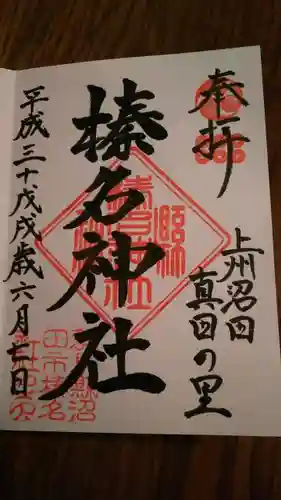 奉拝
上州沼田
真田の里
榛名神社
平成三十戊戌歳六月亡日